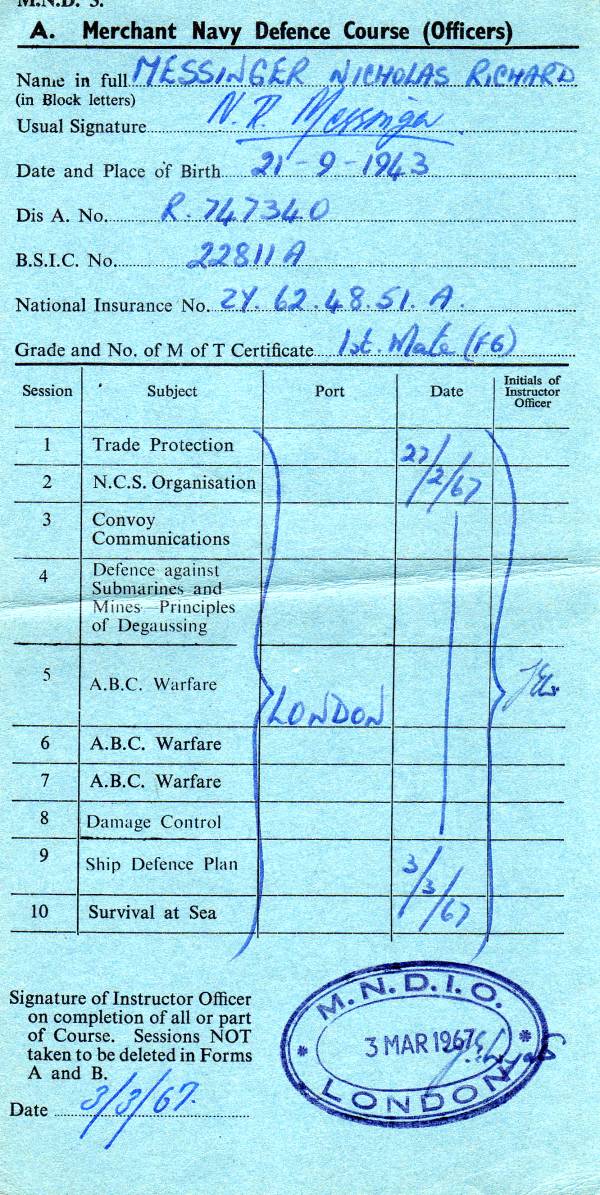 M.N.D. S.
A. Merchant Navy Defence Course (Officers)
Name in full MESSINGER NICHOLAS RICHARD
(in Block letters)
Usual Signature N. R. Messinger
Date and Place of Birth 21-9-1943
Dis A. No. R. 747340
B.S.I.C. No. 22811A
National Insurance No. ZY. 62. 48. 51. A.
Grade and No. of M of T Certificate 1st. Mate (FG)
Session Subject Port Date Initials of Instructor Officer
1 Trade Protection 27/2/67
2 N.C.S. Organisation
3 Convoy
Communications
4 Defence against
Submarines and
Mines—Principles
of Degaussing
5 A.B.C. Warfare LONDON
6 A.B.C. Warfare
7 A.B.C. Warfare
8 Damage Control
9 Ship Defence Plan 3/3/67
10 Survival at Sea
Signature of Instructor Officer
on completion of all or part
of Course. Sessions NOT
taken to be deleted in Forms
A and B.
Date 3/3/67.
M.N.D.I.O.
* 3 MAR 1967 *
LONDON